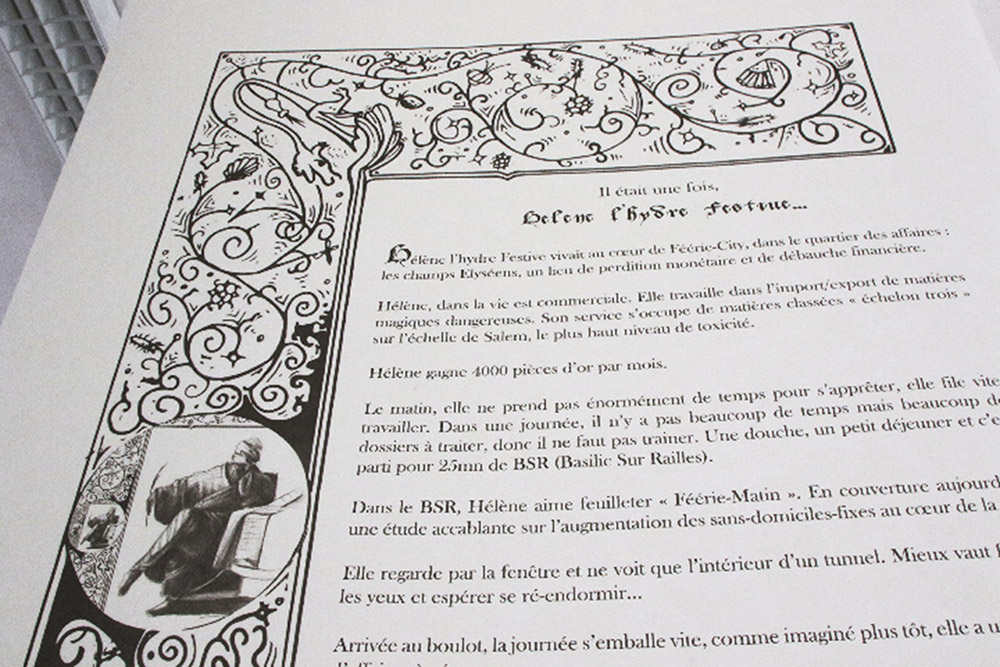 Il était une fois,
Helene l'hydre Festive...
Hélène l'hydre Festive vivait au cœur de Féérie-City, dans le quartier des affaires :
les champs Elyséens, un lieu de perdition monétaire et de débauche financière.
Hélène, dans la vie est commerciale. Elle travaille dans l'import/export de matières
magiques dangereuses. Son service s'occupe de matières classées « échelon trois »
sur l'échelle de Salem, le plus haut niveau de toxicité.
Hélène gagne 4000 pièces d'or par mois.
Le matin, elle ne prend pas énormément de temps pour s'apprêter, elle file vite
travailler. Dans une journée, il n'y a pas beaucoup de temps mais beaucoup de
dossiers à traiter, donc il ne faut pas trainer. Une douche, un petit déjeuner et c'e
parti pour 25mn de BSR (Basilic Sur Railles).
Dans le BSR, Hélène aime feuilleter « Féérie-Matin ». En couverture aujourd
une étude accablante sur l'augmentation des sans-domiciles-fixes au cœur de la
Elle regarde par la fenêtre et ne voit que l'intérieur d'un tunnel. Mieux vaut
les yeux et espérer se ré-endormir...
Arrivée au boulot, la journée s'emballe vite, comme imaginé plus tôt, elle a